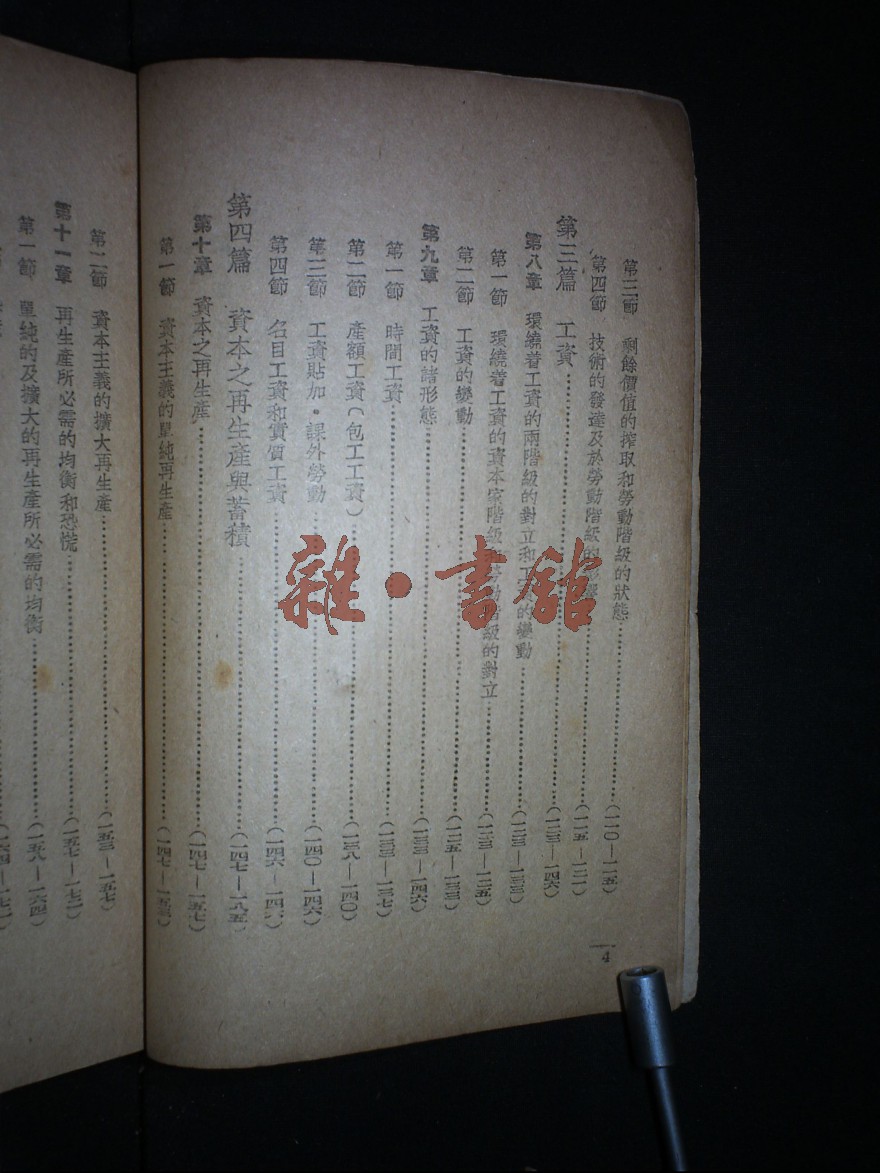 第三節 剩餘價值的搾取和勞動階級的狀態……(一一〇—一一五)
第四節 技術的發達及於勞動階級的影響……(一一五—一二一)
第三篇 工資……(一二三—一四六)
第八章 環繞着工資的兩階級的對立和工資的變動……(一二三—一三三)
第一節 環繞着工資的資本家階級和勞動階級的對立……(一二三—一二五)
第二節 工資的變動……(一二五—一三三)
第九章 工資的諸形態……(一三三—一四六)
第一節 時間工資……(一三三—一三七)
第二節 產額工資(包工工資)……(一三八—一四〇)
第三節 工資貼加・課外勞動……(一四〇—一四六)
第四節 名目工資和實質工資……(一四六—一四六)
第四篇 資本之再生產與蓄積……(一四七—一八五)
第十章 資本之再生產……(一四七—一五七)
第一節 資本主義的單純再生產……(一四七—一五三)
4
第二節 資本主義的擴大再生產……(一五三—一五七)
第十一章 再生產所必需的均衡和恐慌……(一五七—一七二)
第一節 單純的及擴大的再生產所必需的均衡……(一五八—一六四)
雜・書館